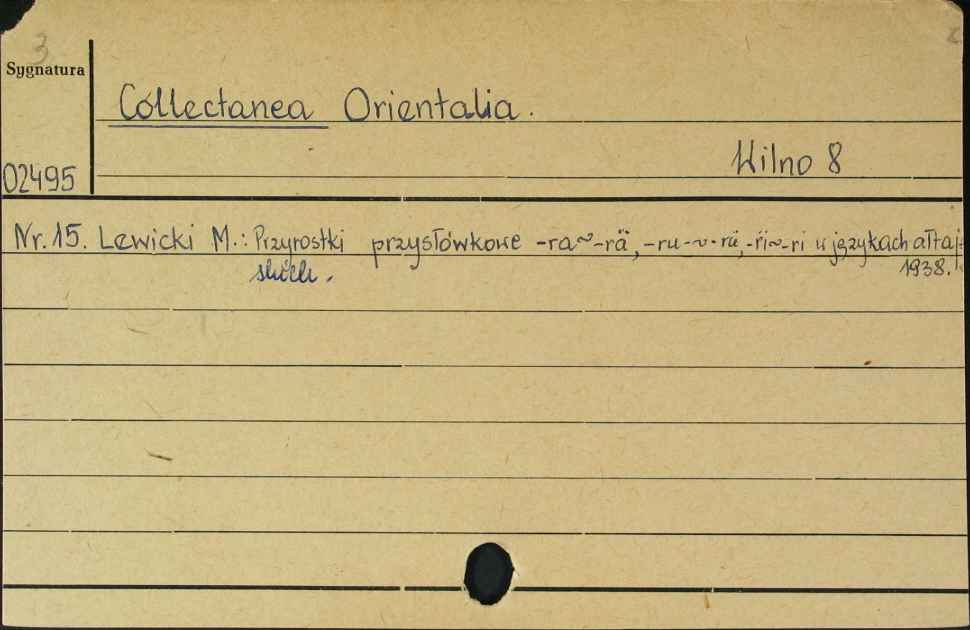 3
Sygnatura
Collectanea Orientalia.
Wilno 8
02495
Nr. 15. Lewicki M.: Przyrostki przysłówkowe -ra~-rä, -ru-~-rü, -ri~-ri w językach ałtaj-
skich.
1938.